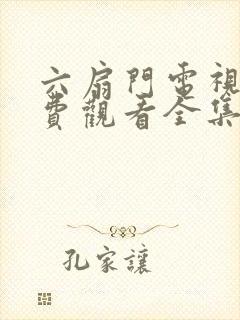 六扇門電視
費觀看全集
孔家讓